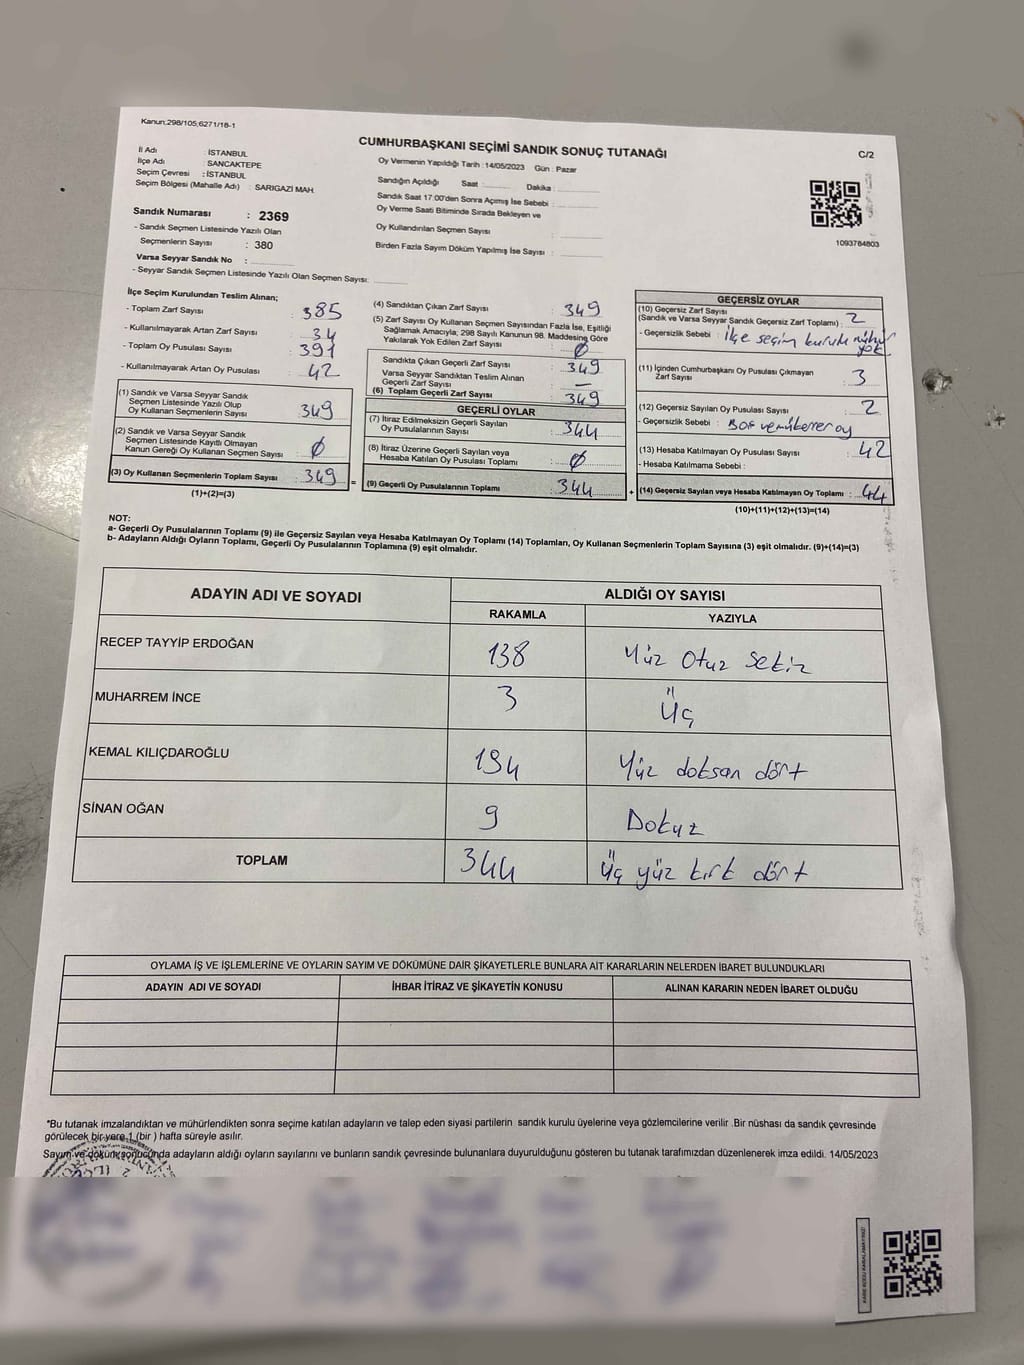 Kanun:298/105;6271/18-1
CUMHURBAŞKANI SEÇİMİ SANDIK SONUÇ TUTANAĞI
C/2
İl Adı : İSTANBUL
İlçe Adı : SANCAKTEPE
Seçim Çevresi : İSTANBUL
Seçim Bölgesi (Mahalle Adı) : SARIGAZİ MAH.
Sandık Numarası : 2369
- Sandık Seçmen Listesinde Yazılı Olan
Seçmenlerin Sayısı : 380
Varsa Seyyar Sandık No :
- Seyyar Sandık Seçmen Listesinde Yazılı Olan Seçmen Sayısı:
Oy Vermenin Yapıldığı Tarih :14/05/2023 Gün : Pazar
Sandığın Açıldığı Saat : Dakika :
Sandık Saat 17.00'den Sonra Açımış İse Sebebi :
Oy Verme Saati Bitiminde Sırada Bekleyen ve
Oy Kullandırılan Seçmen Sayısı :
Birden Fazla Sayım Döküm Yapılmış İse Sayısı :
1093784803
İlçe Seçim Kurulundan Teslim Alınan;
- Toplam Zarf Sayısı : 385
- Kullanılmayarak Artan Zarf Sayısı : 34
- Toplam Oy Pusulası Sayısı : 391
- Kullanılmayarak Artan Oy Pusulası : 42
(1) Sandık ve Varsa Seyyar Sandık
Seçmen Listesinde Yazılı Olup
Oy Kullanan Seçmenlerin Sayısı : 349
(2) Sandık ve Varsa Seyyar Sandık
Seçmen Listesinde Kayıtlı Olmayan
Kanun Gereği Oy Kullanan Seçmen Sayısı : Ø
(3) Oy Kullanan Seçmenlerin Toplam Sayısı : 349
(1)+(2)=(3)
(4) Sandıktan Çıkan Zarf Sayısı : 349
(5) Zarf Sayısı Oy Kullanan Seçmen Sayısından Fazla İse, Eşitliği
Sağlamak Amacıyla, 298 Sayılı Kanunun 98. Maddesine Göre
Yakılarak Yok Edilen Zarf Sayısı : Ø
Sandıkta Çıkan Geçerli Zarf Sayısı : 349
Varsa Seyyar Sandıktan Teslim Alınan
Geçerli Zarf Sayısı : —
(6) Toplam Geçerli Zarf Sayısı : 349
=
GEÇERLİ OYLAR
(7) İtiraz Edilmeksizin Geçerli Sayılan
Oy Pusulalarının Sayısı : 344
(8) İtiraz Üzerine Geçerli Sayılan veya
Hesaba Katılan Oy Pusulası Toplamı : Ø
(9) Geçerli Oy Pusulalarının Toplamı : 344
+
GEÇERSİZ OYLAR
(10) Geçersiz Zarf Sayısı
(Sandık ve Varsa Seyyar Sandık Geçersiz Zarf Toplamı) : 2
- Geçersizlik Sebebi : ilçe seçim kurulu mühür
yok
(11) İçinden Cumhurbaşkanı Oy Pusulası Çıkmayan
Zarf Sayısı : 3
(12) Geçersiz Sayılan Oy Pusulası Sayısı : 2
- Geçersizlik Sebebi : Boş ve mükerrer oy
(13) Hesaba Katılmayan Oy Pusulası Sayısı : 42
- Hesaba Katılmama Sebebi :
(14) Geçersiz Sayılan veya Hesaba Katılmayan Oy Toplamı : 44
(10)+(11)+(12)+(13)=(14)
NOT:
a- Geçerli Oy Pusulalarının Toplamı (9) ile Geçersiz Sayılan veya Hesaba Katılmayan Oy Toplamı (14) Toplamları, Oy Kullanan Seçmenlerin Toplam Sayısına (3) eşit olmalıdır. (9)+(14)=(3)
b- Adayların Aldığı Oyların Toplamı, Geçerli Oy Pusulalarının Toplamına (9) eşit olmalıdır.
ADAYIN ADI VE SOYADI
ALDIĞI OY SAYISI
RAKAMLA YAZIYLA
RECEP TAYYİP ERDOĞAN 138 Yüz Otuz Sekiz
MUHARREM İNCE 3 Üç
KEMAL KILIÇDAROĞLU 194 Yüz doksan dört
SİNAN OĞAN 9 Dokuz
TOPLAM 344 Üç yüz kırk dört
OYLAMA İŞ VE İŞLEMLERİNE VE OYLARIN SAYIM VE DÖKÜMÜNE DAİR ŞİKAYETLERLE BUNLARA AİT KARARLARIN NELERDEN İBARET BULUNDUKLARI
ADAYIN ADI VE SOYADI İHBAR İTİRAZ VE ŞİKAYETİN KONUSU ALINAN KARARIN NEDEN İBARET OLDUĞU
*Bu tutanak imzalandıktan ve mühürlendikten sonra seçime katılan adayların ve talep eden siyasi partilerin sandık kurulu üyelerine veya gözlemcilerine verilir .Bir nüshası da sandık çevresinde
görülecek bir yere 1 (bir ) hafta süreyle asılır.
Sayım ve döküm sonucunda adayların aldığı oyların sayılarını ve bunların sandık çevresinde bulunanlara duyurulduğunu gösteren bu tutanak tarafımızdan düzenlenerek imza edildi. 14/05/2023
KARE KODU KARALAMAYINIZ!